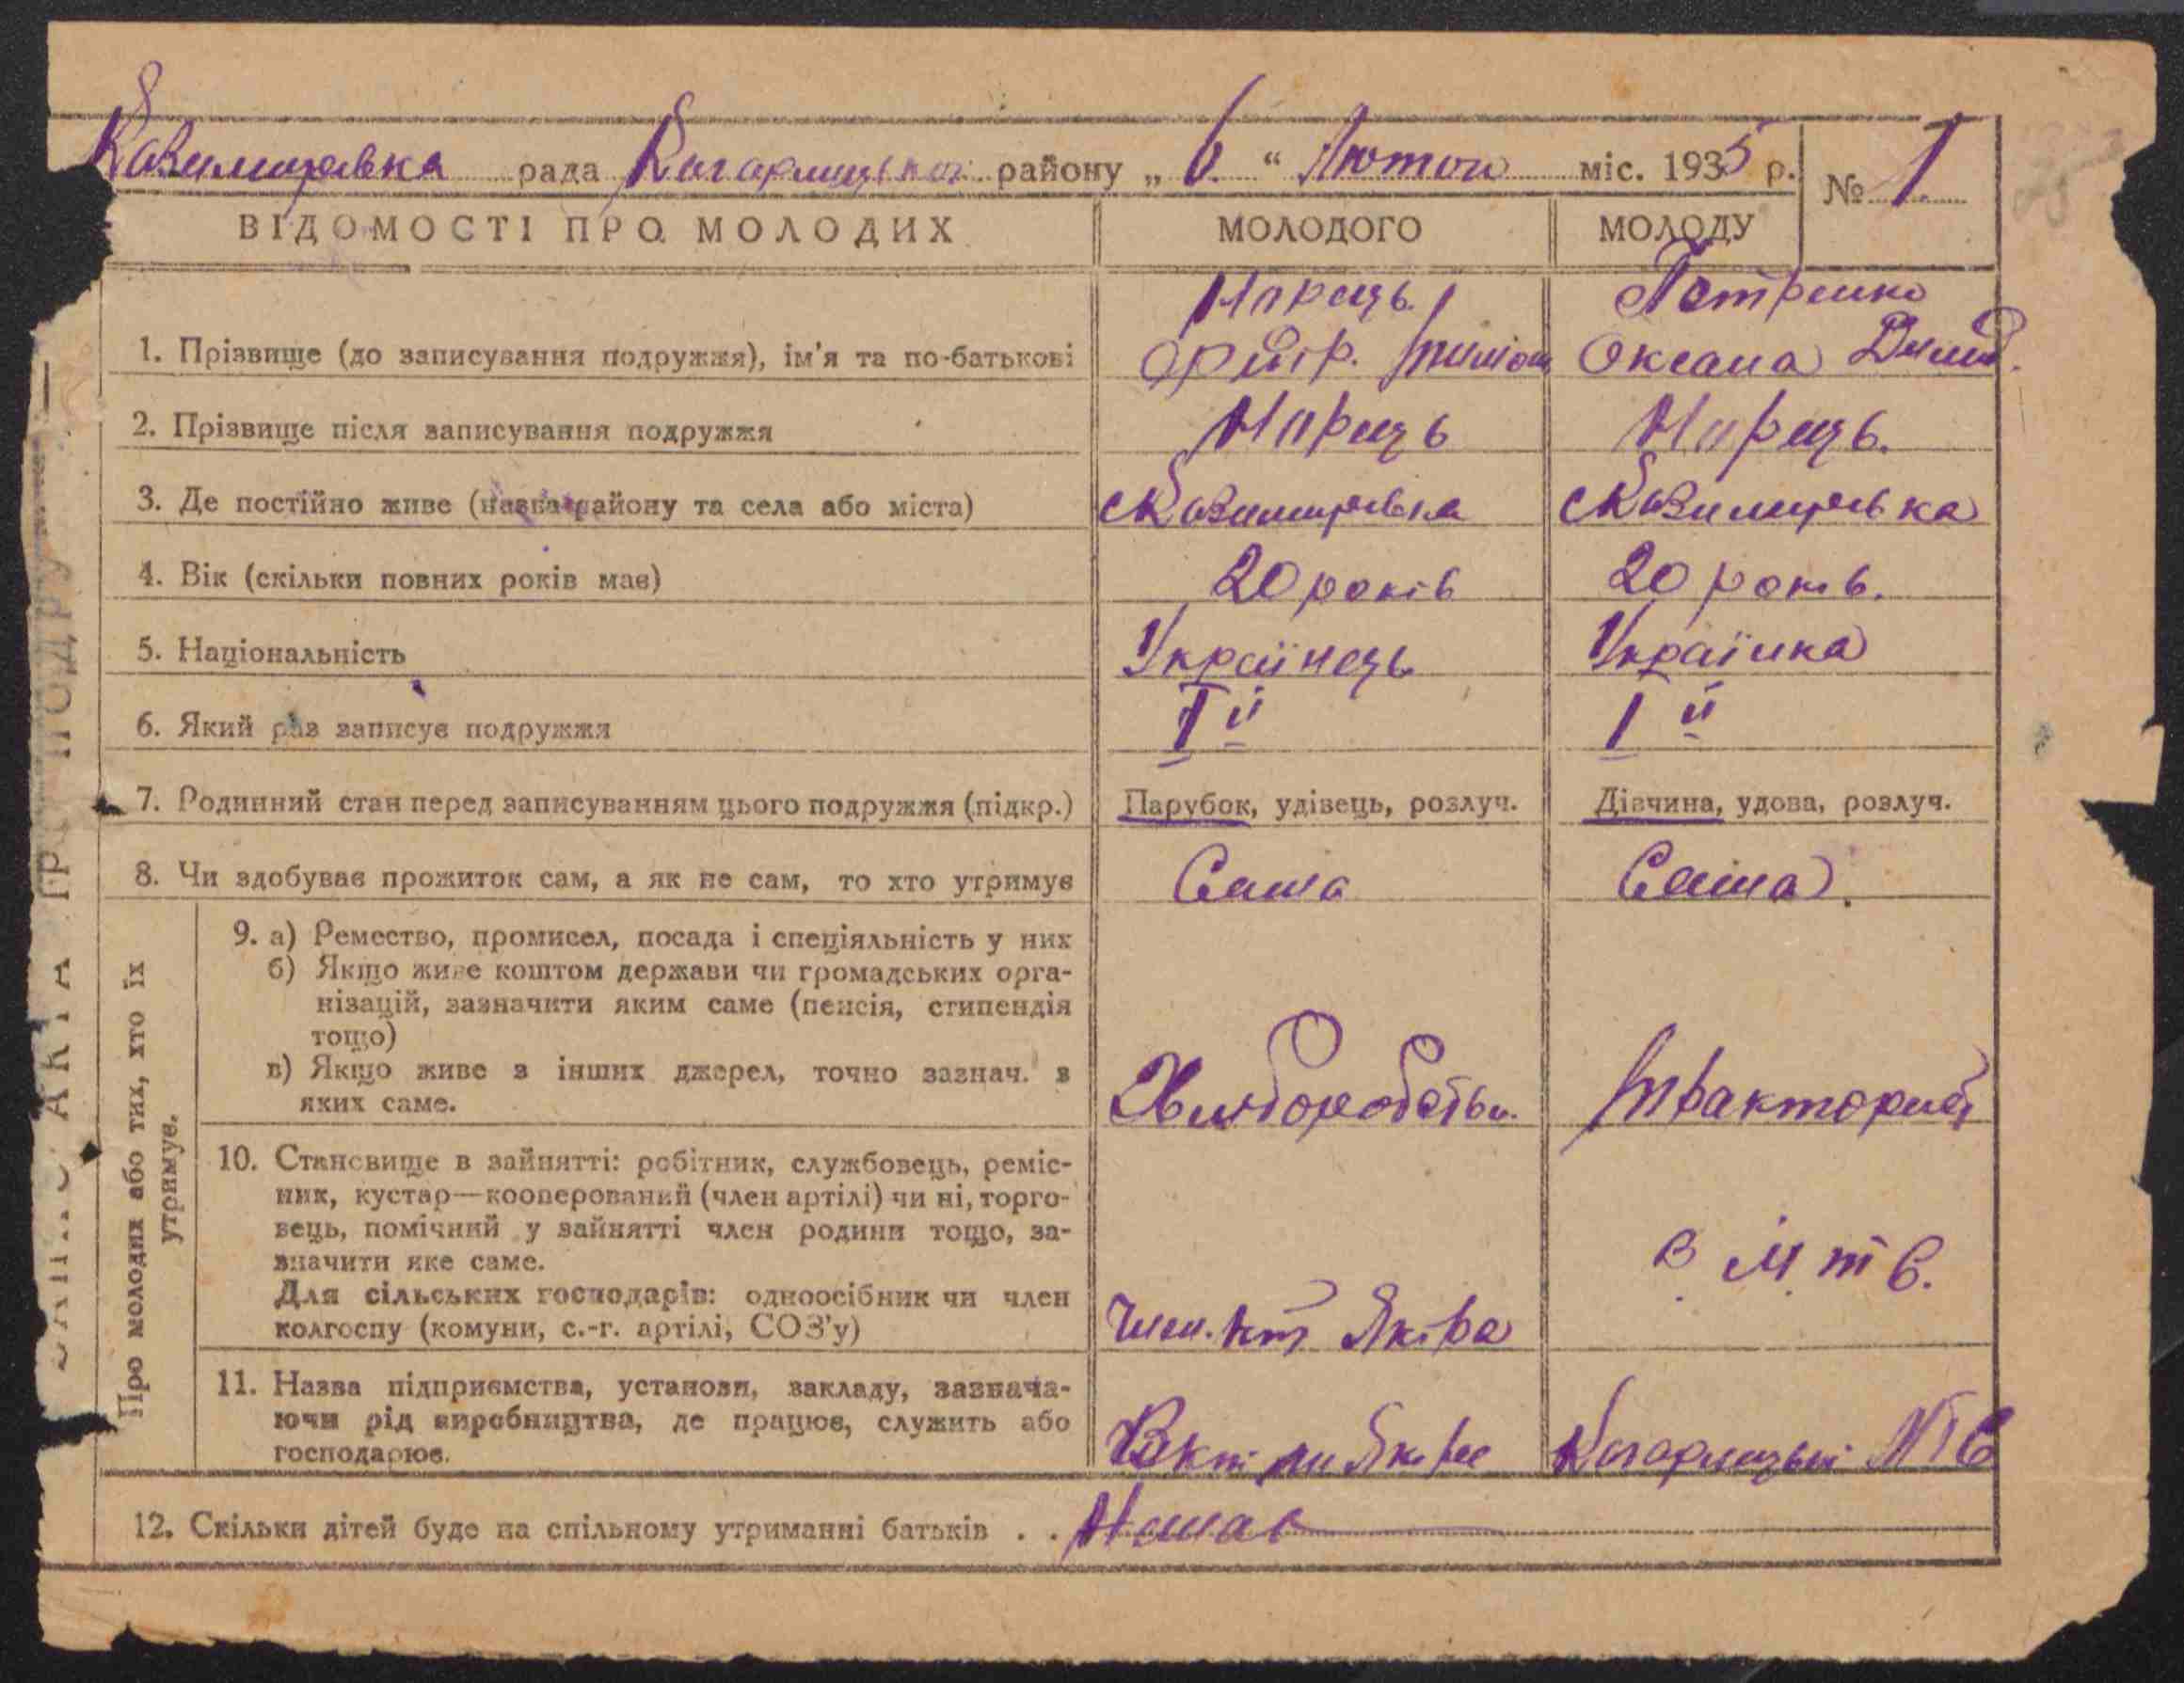 Казимирівка рада Кагарлицького району „ 6 “ Лютого міс. 1935 р. № 1
ВІДОМОСТІ ПРО МОЛОДИХ МОЛОДОГО МОЛОДУ
1. Прізвище (до записування подружжя), ім'я та по-батькові Петренко Оксана
2. Прізвище після записування подружжя
3. Де постійно живе (назва району та села або міста) с Казимирівка с Казимирівка
4. Вік (скільки повних років має) 20 років 20 років.
5. Національність Українець Українка
6. Який раз записує подружжя Iй Iй
7. Родинний стан перед записуванням цього подружжя (підкр.) Парубок, удівець, розлуч. Дівчина, удова, розлуч.
8. Чи здобуває прожиток сам, а як не сам, то хто утримує Сама Сама
Про молодих або тих, хто їх утримує.
9. а) Ремество, промисел, посада і спеціяльність у них
б) Якщо живе коштом держави чи громадських орга-
нізацій, зазначити яким саме (пенсія, стипендія
тощо)
в) Якщо живе з інших джерел, точно зазнач. з
яких саме. Хліборобств. Тракторист
10. Становище в зайнятті: робітник, службовець, реміс-
ник, кустар—кооперований (член артілі) чи ні, торго-
вець, помічний у зайнятті член родини тощо, за-
значити яке саме. в М т С.
Для сільських господарів: одноосібник чи член
колгоспу (комуни, с.-г. артілі, СОЗ'у) член. Якіра
11. Назва підприємства, установи, закладу, зазнача-
ючи рід виробництва, де працює, служить або
господарює. Якіра Кагарлицькі МТС
12. Скільки дітей буде на спільному утриманні батьків . . Немає
ЗАПИС АКТА ПРО ПОДРУЖЖЯ